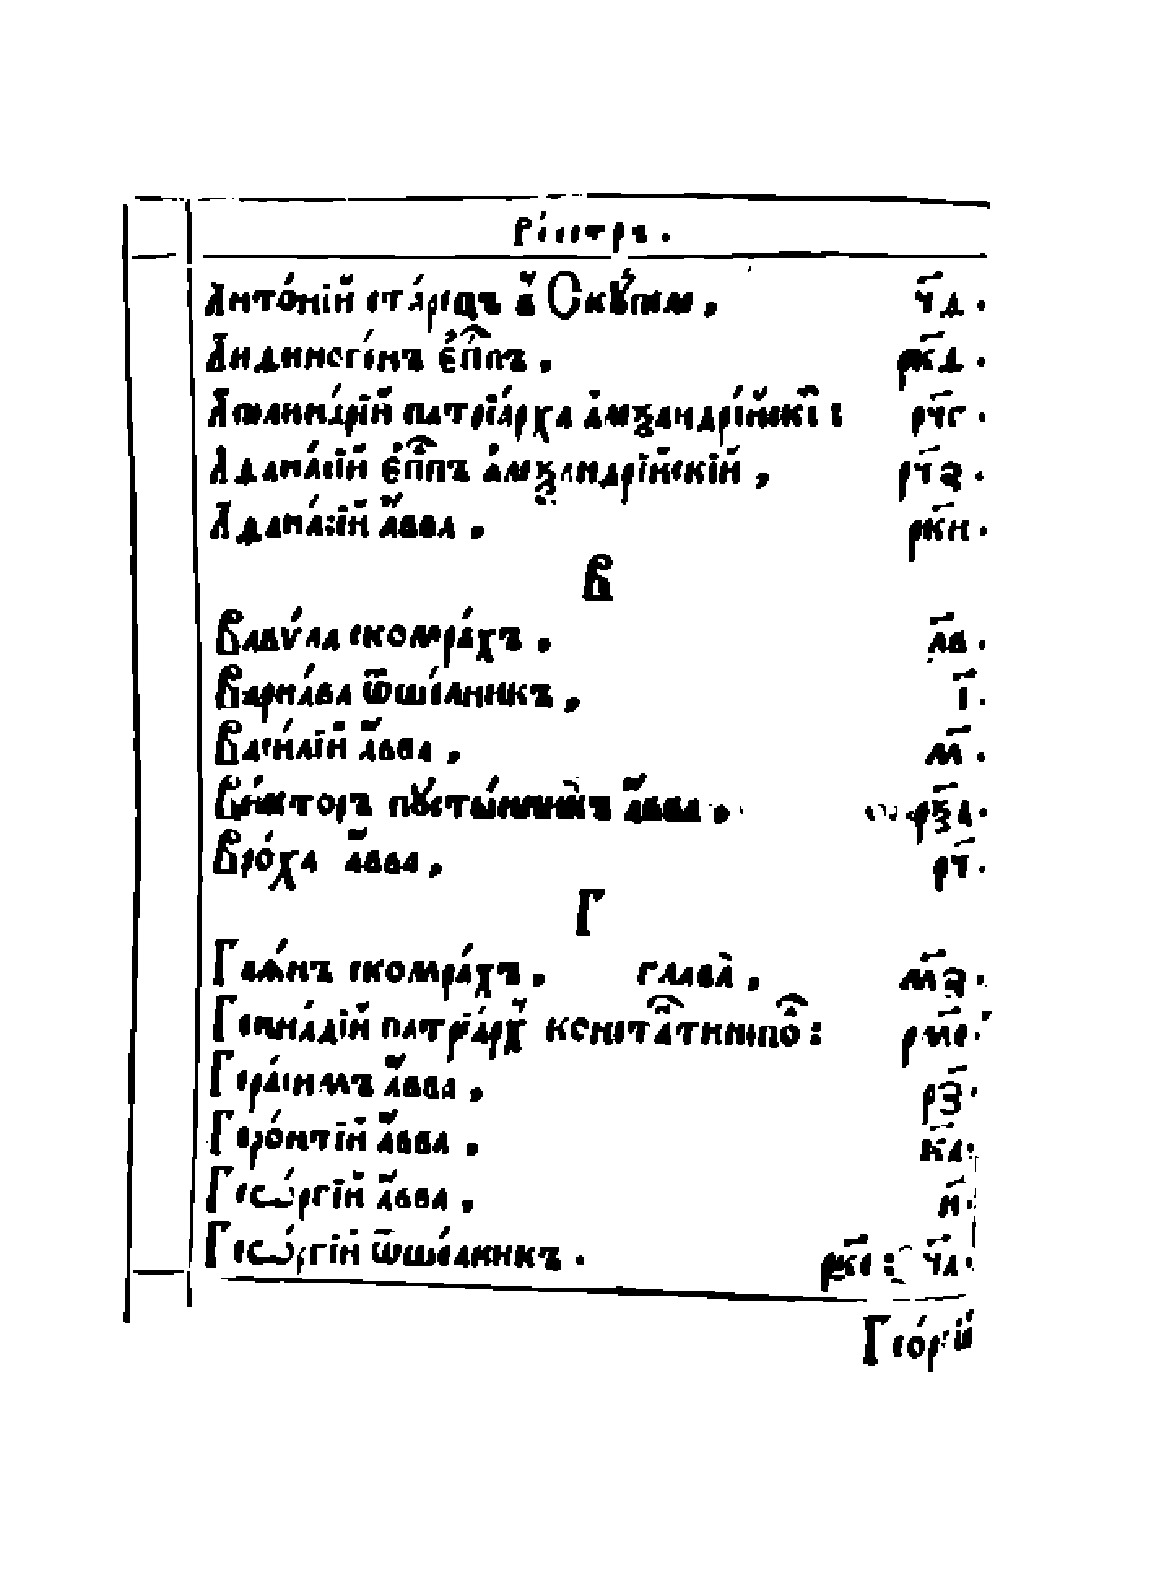 Реестръ.
Антоній старецъ в Скупели, чд.
Андиноге́нъ е҆пⷭ҇пъ, ркд.
Аполинарій патріарха алеѯандрійскі: рчг.
Аданасій е҆пⷭ҇пъ алеѯандрійскій, рчз.
Аданасій авва, ркн.
В
Вавѵла скомрахъ, лв.
Варнава ѿшелникъ, і.
Василій авва, м.
Викторъ пустынникъ авва, рѯд.
Вроха авва, рч.
Г
Гаѧнъ скомрахъ, глава, мз.
Геннадій патріарх констатинопо: рме.
Герасимъ авва, рз.
Геронтій авва, ка.
Геѡргій авва, н.
Геѡргій ѿшелникъ. рке: чд.
Геѡргій